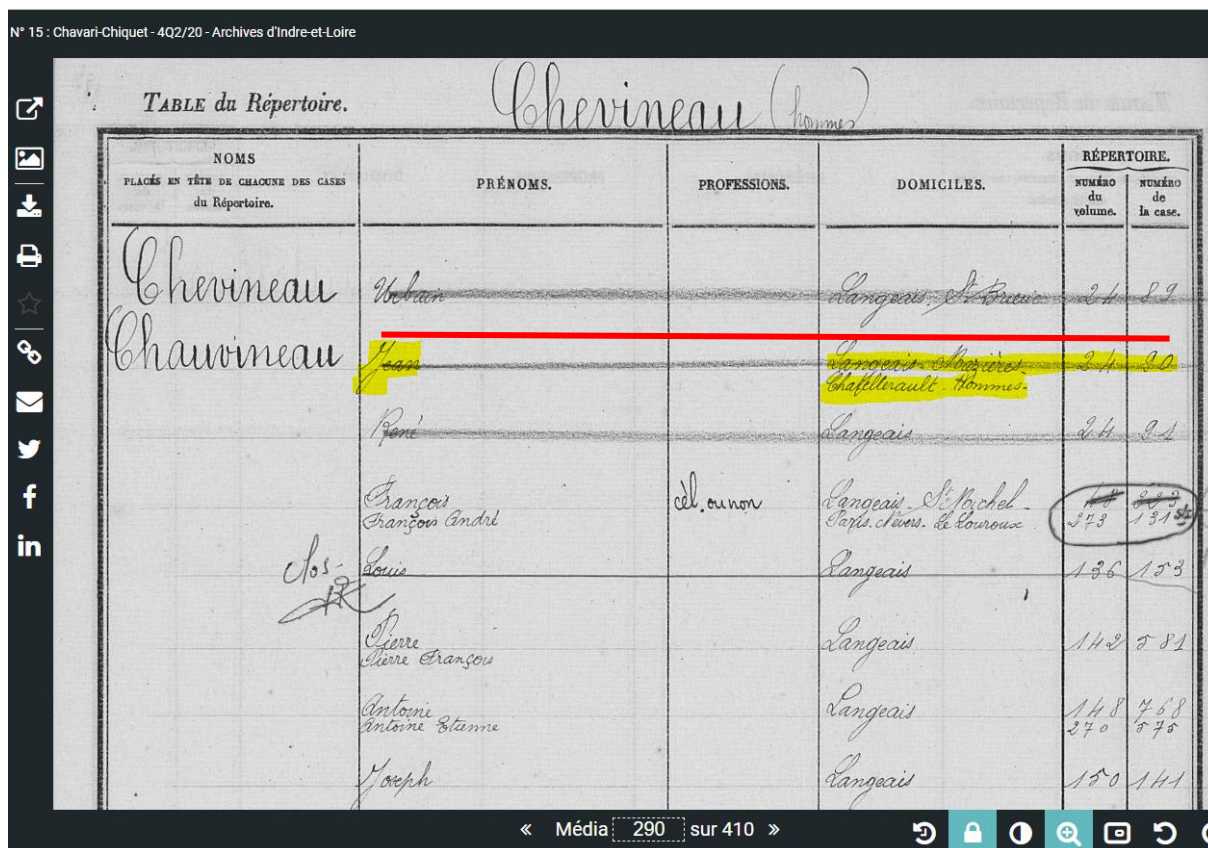 N° 15 : Chavari-Chiquet - 4Q2/20 - Archives d'Indre-et-Loire
TABLE du Répertoire. Chevineau (hommes)
NOMS
PLACÉS EN TÊTE DE CHACUNE DES CASES
du Répertoire.
PRÉNOMS.
PROFESSIONS.
DOMICILES.
RÉPERTOIRE.
NUMÉRO
du
volume.
NUMÉRO
de
la case.
Chevineau Urbain Langeais. St Brieuc 24 89
Chauvineau Jean Langeais - Mazières - 24 90
Chatellerault - Hommes -
René Langeais 24 91
François cél. ou non Langeais - St Michel - 223
François André Paris. Nevers. Le Louroux 273 131
clos - Louis Langeais 136 153
Pierre Langeais 142 581
Pierre François
Antoine Langeais 148 768
Antoine Etienne 270 575
Joseph Langeais 150 141
« Média 290 sur 410 »